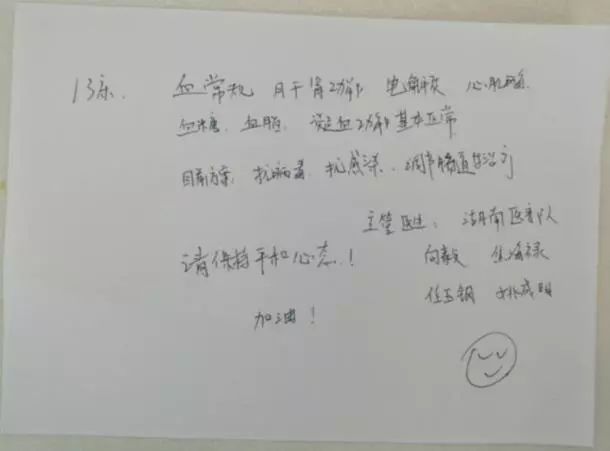 13床. 血常规 肝肾功能 电解质 心肌酶
血糖、血脂、凝血功能基本正常
目前方案: 抗病毒、抗感染、调节肠道等治疗
主管医生: 湖南医疗队
请保持平和心态!
向毅
任玉钢
加油!